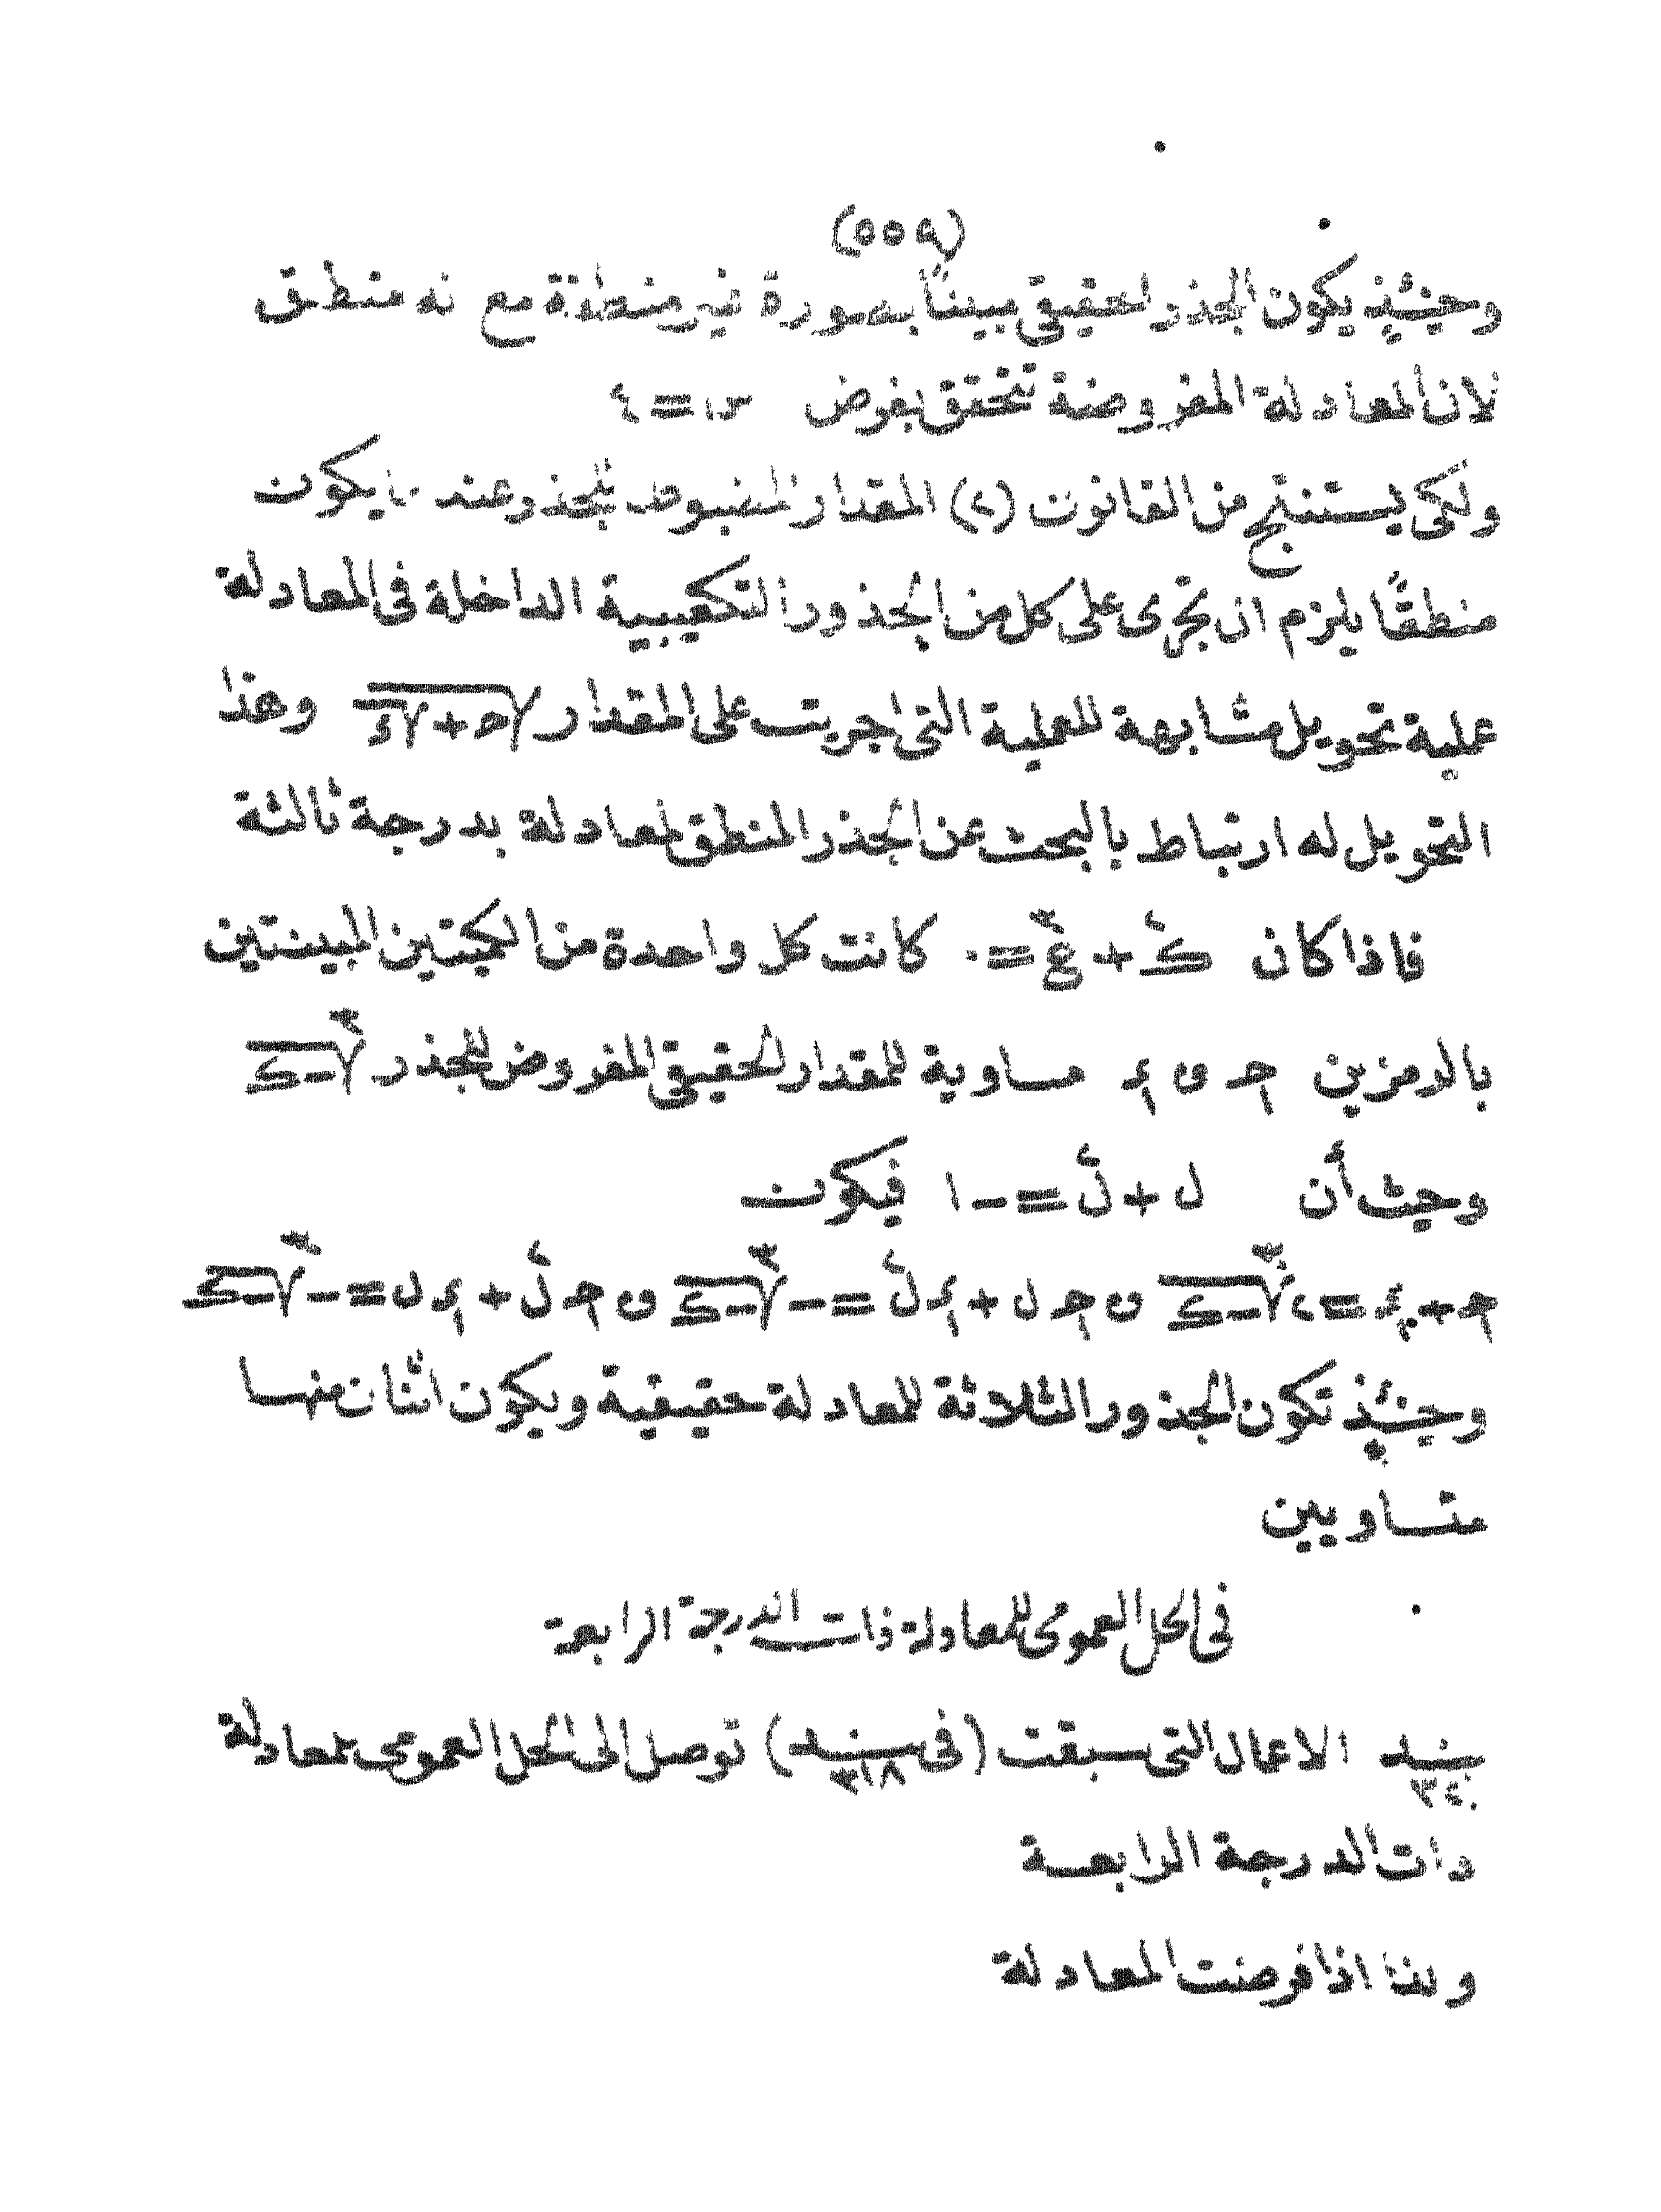 (٥٥٩)
وحينئذ يكون الجذر الحقيقى مبيناً بصورة غير منطقة مع انه منطق
لان المعادلة المفروضة تتحقق بفرض س = ٤
ولكى يستنتج من القانون (٢) المقدار المضبوط للجذر عند ما يكون
منطقًا يلزم ان تجرى على كل من الجذور التكعيبية الداخلة فى المعادلة
عملية تحويل مشابهة للعملية التى اجريت على المقدار √٥+√٤ وهذا
التحويل له ارتباط بالبحث عن الجذر المنطق لمعادلة بدرجة ثالثة
فاذا كان ك٢ + ع٣ = ٠ كانت كل واحدة من الكميتين المبينتين
بالرمزين حـ و م مساوية للمقدار الحقيقى المفروض للجذر ٣√-ك
وحيث أن ل + ل٢ = - ١ فيكون
حـ + م = ٢ ٣√-ك و حـ ل + م ل٢ = - ٣√-ك و حـ ل٢ + م ل = - ٣√-ك
وحينئذ تكون الجذور الثلاثة للمعادلة حقيقية ويكون اثنان منها
متساويين
فى الحل العمومى للمعادلة ذات الدرجة الرابعة
بند ٣٤٠ الاعمال التى سبقت (فى بند ٣١٨) توصل الى الحل العمومى لمعادلة
ذات الدرجة الرابعة
ولهذا اذا فرضت المعادلة